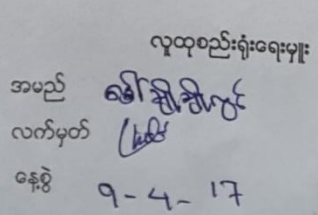 လူထုစည်းရုံးရေးမှူး
အမည် ဒေါ်ချိုချိုလွင်
လက်မှတ်
နေ့စွဲ ၇-4-17